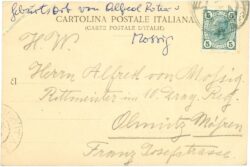 Geburtsort von Alfred
CARTOLINA POSTALE ITALIANA
(CARTE POSTALE D'ITALIE)
H. W.
Herrn Alfred von Mossig
Rittmeister im 10. Drag. Reg.
Olmütz Mähren
Franz Josefstrasse